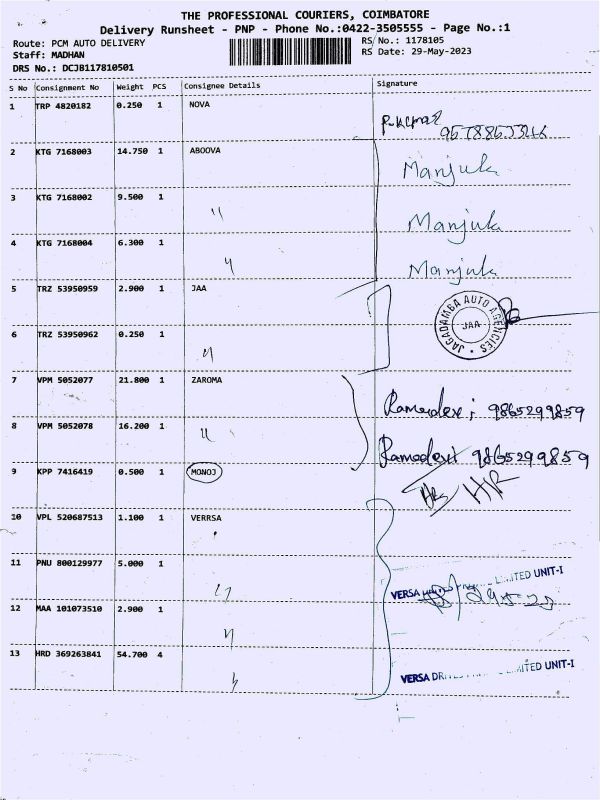 THE PROFESSIONAL COURIERS, COIMBATORE
Delivery Runsheet - PNP - Phone No.:0422-3505555 - Page No.:1
Route: PCM AUTO DELIVERY
RS No.: 1178105
Staff: MADHAN
RS Date: 29-May-2023
DRS No.: DCJB117810501
S No Consignment No Weight PCS Consignee Details Signature
1 TRP 4820182 0.250 1 NOVA
2 KTG 7168003 14.750 1 ABOOVA Manjula
3 KTG 7168002 9.500 1 " Manjula
4 KTG 7168004 6.300 1 " Manjula
5 TRZ 53950959 2.900 1 JAA
JAGADAMBA AUTO AGENCIES
JAA
6 TRZ 53950962 0.250 1 "
7 VPM 5052077 21.800 1 ZAROMA Ramadevi 9865299859
8 VPM 5052078 16.200 1 " Ramadevi 9865299859
9 KPP 7416419 0.500 1 MONOJ HR
10 VPL 520687513 1.100 1 VERRSA
11 PNU 800129977 5.000 1 "
VERSA LIMITED UNIT-I
12 MAA 101073510 2.900 1 "
13 HRD 369263841 54.700 4 "
VERSA LIMITED UNIT-I